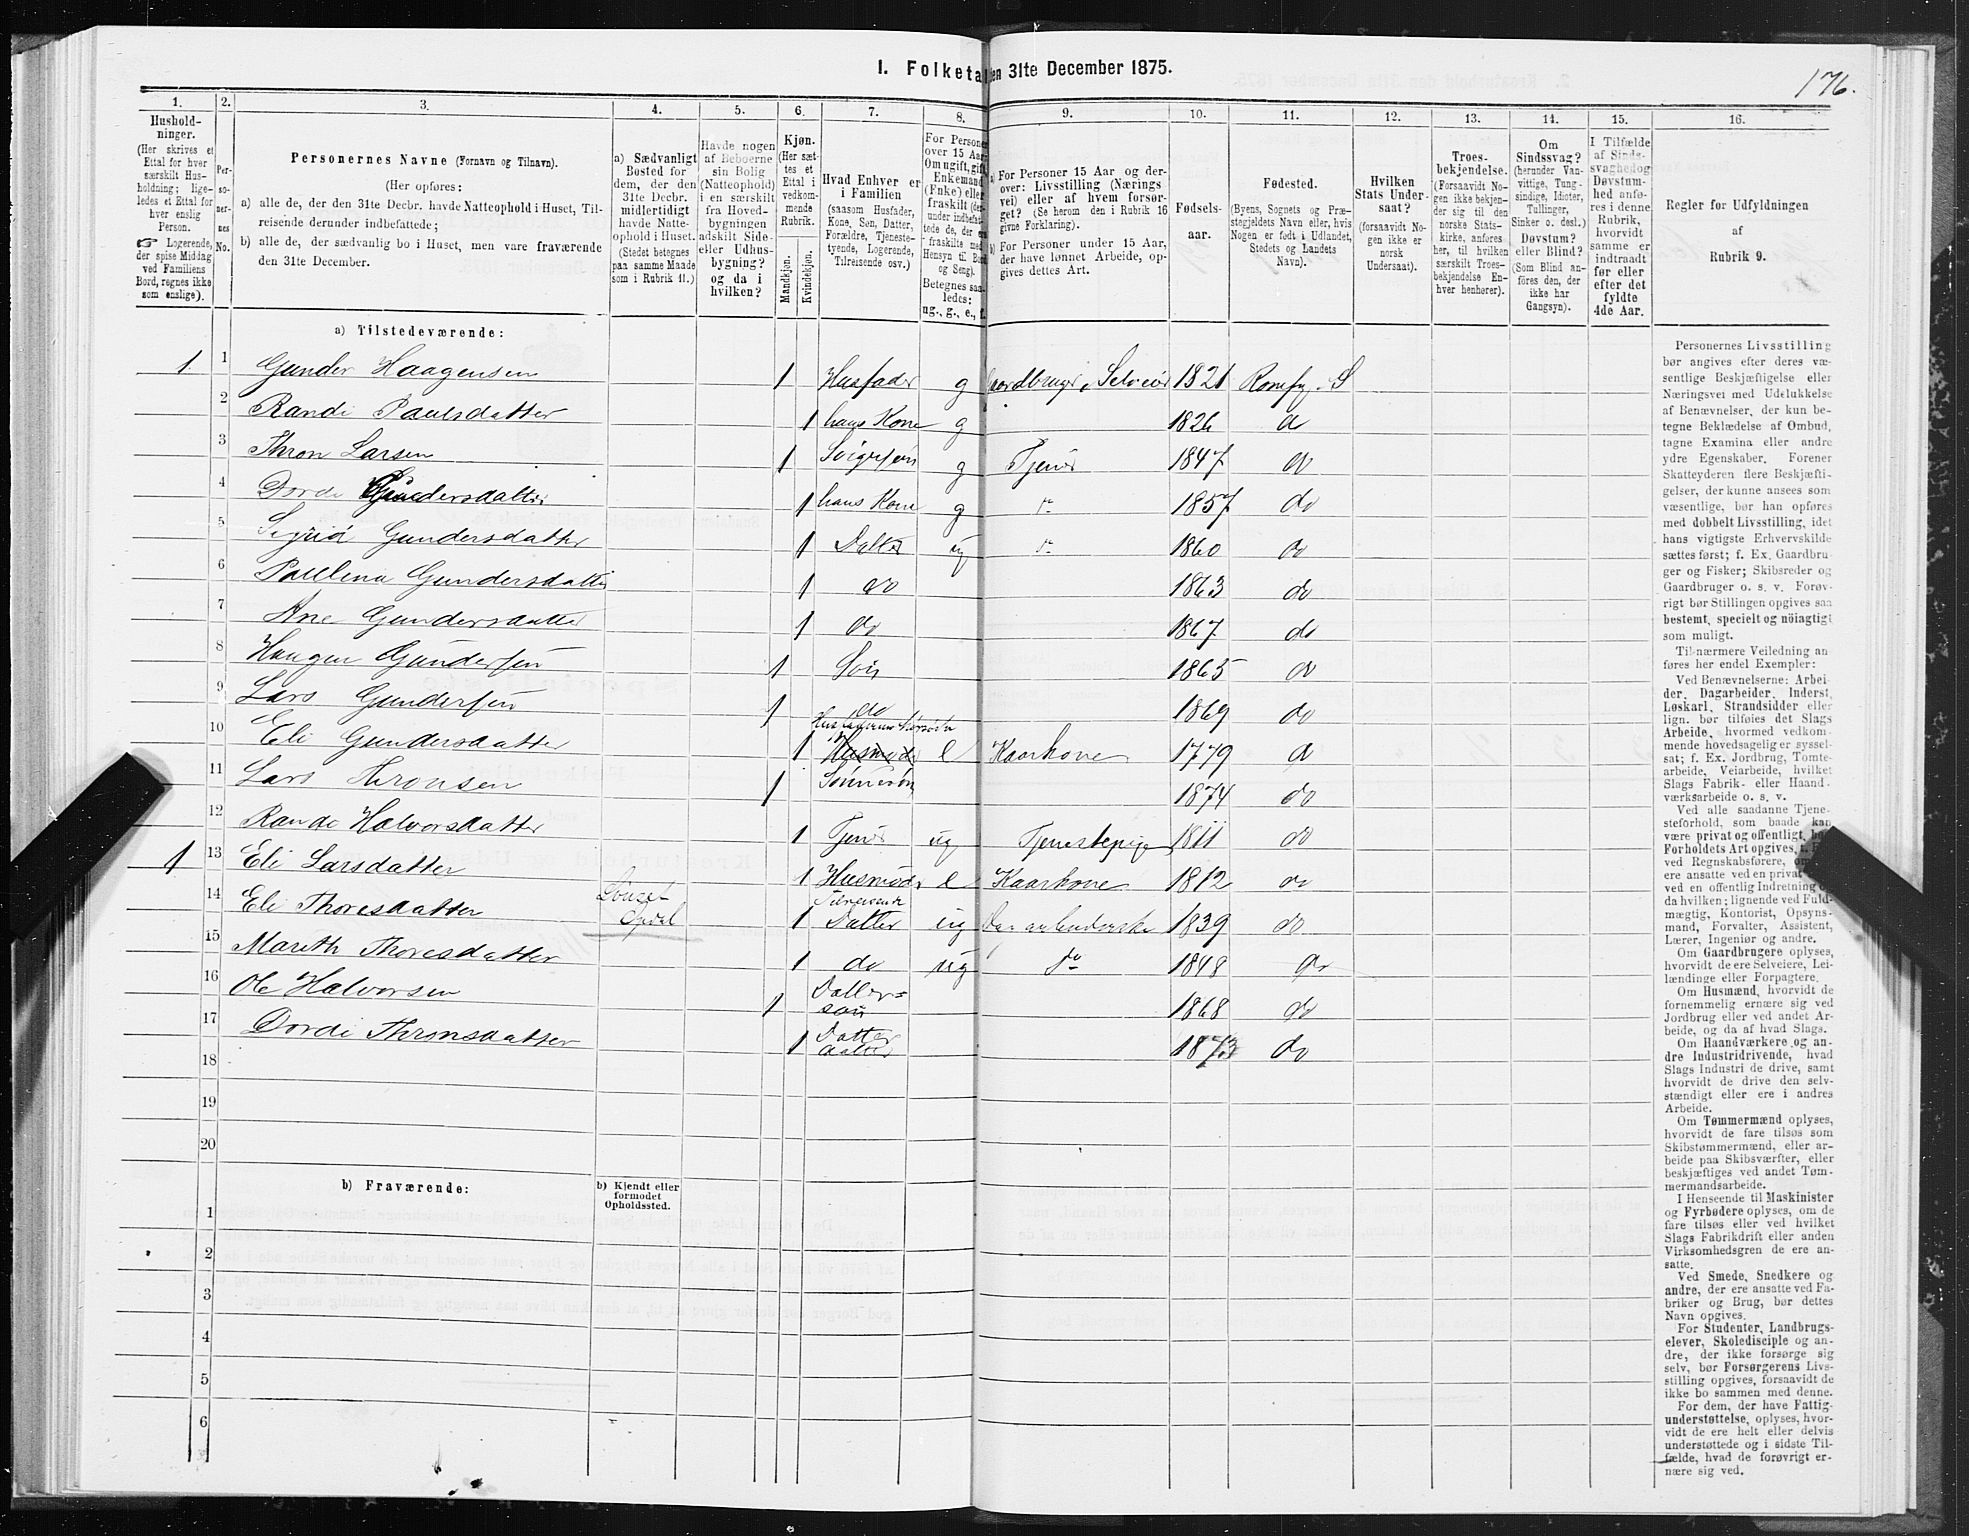 I. Folketal den 31te December 1875.
176.
1. 2. 3. 4. 5. 6. 7. 8. 9. 10. 11. 12. 13. 14. 15. 16.
Hushold-
ninger.
(Her skrives et
Ettal for hver
særskilt Hus-
holdning; lige-
ledes et Ettal for
hver enslig
Person.
☞ Logerende,
der spise Middag
ved Familiens
Bord, regnes ikke
som enslige).
Per-
so-
ner-
nes
No.
Personernes Navne (Fornavn og Tilnavn).
(Her opføres:
a) alle de, der den 31te Decbr. havde Natteophold i Huset, Til-
reisende derunder indbefattede;
b) alle de, der sædvanlig bo i Huset, men vare fraværende
den 31te December.
a) Sædvanligt
Bosted for
dem, der den
31te Decbr.
midlertidigt
havde Natte-
ophold i Huset.
(Stedet betegnes
paa samme Maade
som i Rubrik 11.)
Havde nogen
af Beboerne
sin Bolig
(Natteophold)
i en særskilt
fra Hoved-
bygningen
adskilt Side-
eller Udhus-
bygning?
og da i
hvilken?
Kjøn.
(Her sæt-
tes et
Ettal i
vedkom-
mende
Rubrik.
Mandkjøn.
Kvindekjøn.
Hvad Enhver er
i Familien
(saasom Husfader,
Kone, Søn, Datter,
Forældre, Tjeneste-
tyende, Logerende,
Tilreisende osv.)
For Personer
over 15 Aar:
Om ugift, gift,
Enkemand
(Fnke) eller
fraskilt (der-
under indbefat-
tede de, der ere
fraskilte med
Hensyn til Bord
og Seng).
Betegnes saa-
ledes:
ug., g., e., f.
a) For Personer 15 Aar og der-
over: Livsstilling (Nærings
vei) eller af hvem forsør-
get? (Se herom den i Rubrik 16
givne Forklaring).
b) For Personer under 15 Aar,
der have lønnet Arbeide, op-
gives dettes Art.
Fødsels-
aar.
Fødested.
(Byens, Sognets og Præ-
stegjeldets Navn eller, hvis
Nogen er født i Udlandet,
Stedets og Landets
Navn).
Hvilken
Stats Under-
saat?
(forsaavidt No-
gen ikke er
norsk
Undersaat).
Troes-
bekjendelse.
(Forsaavidt No-
gen ikke bekjen-
der sig til den
norske Stats-
kirke, anføres
her, til hvilken
særskilt Troes-
bekjendelse En-
hver henhører).
Om
Sindssvag?
(herunder Van-
vittige, Tung-
sindige, Idioter,
Tullinger,
Sinker o. desl.)
Døvstum?
eller Blind?
(Som Blind an-
føres den, der
ikke har
Gangsyn).
I Tilfælde
af Sinds-
svaghedog
Døvstum-
hed anfø-
res i denne
Rubrik,
hvorvidt
samme er
indtraadt
før eller
efter det
fyldte
4de Aar.
Regler for Udfyldningen
af
Rubrik 9.
a) Tilstedeværende:
1 1 Gunder Haagensen 1 Husfader g Gaardbruger, Selveier 1821 S
2 Randi Paulsdatter 1 hans Kone g 1826 d
3 Thron Larsen 1 Svigersøn g Tjener 1847 do
4 Dordi Gundersdatter 1 hans Kone g 1857 do
5 Sigrid Gundersdatter 1 Datter ug 1860 do
6 Paulina Gundersdatter 1 do 1863 do
7 Ane Gundersdatter 1 do 1867 do
8 Haagen Gundersen 1 Søn 1865 do
9 Lars Gundersen 1 do 1869 do
10 Eli Gundersdatter 1 e Kaarkone 1779 d
11 Lars Thronsen 1 Sønnesøn 1874 do
12 Rande Halvorsdatter 1 Tjener ug Tjenestepige 1811 do
1 13 Eli Larsdatter 1 Husmoder e Kaarkone 1812 do
14 Eli Thoresdatter Opdal 1 Tilreisende Datter ug 1839 do
15 Mareth Thoresdatter 1 do ug do 1848 do
16 Ole Halvorsen 1 Datter=
søn 1868 do
17 Dordi Thronsdatter 1 Datter
datter 1873 do
18
19
20
b) Fraværende:
b) Kjendt eller
formodet
Opholdssted.
1
2
3
4
5
6
Personernes Livsstilling
bør angives efter deres væ-
sentlige Beskjæftigelse eller
Næringsvei med Udelukkelse
af Benævnelser, der kun be-
tegne Beklædelse af Ombud,
tagne Examina eller andre
ydre Egenskaber. Forener
Skatteyderen flere Beskjæfti-
gelser, der kunne ansees som
væsentlige, bør han opføres
med dobbelt Livsstilling, idet
hans vigtigste Erhvervskilde
sættes først; f. Ex. Gaardbru-
ger og Fisker; Skibsreder og
Gaardbruger o. s. v. Forøv-
rigt bør Stillingen opgives saa
bestemt, specielt og nøiagtigt
som muligt.
Til nærmere Veiledning an
føres her endel Exempler:
Ved Benævnelserne: Arbei-
der, Dagarbeider, Inderst,
Løskarl, Strandsidder eller
lign. bør tilføies det Slags
Arbeide, hvormed vedkom-
mende hovedsagelig er syssel-
sat; f. Ex. Jordbrug, Tomte-
arbeide, Veiarbeide, hvilket
Slags Fabrik- eller Haand-
værksarbeide o. s. v.
Ved alle saadanne Tjene-
steforhold, som baade kan
være privat og offentligt, bør
Forholdets Art opgives,
ved Regnskabsførere,
ere ansatte ved en privat
ved en offentlig Indretning
da hvilken; lignende ved Fuld-
mægtig, Kontorist, Opsyns-
mand, Forvalter, Assistent,
Lærer, Ingeniør og andre.
Om Gaardbrugere oplyses,
hvorvidt de ere Selveiere, Lei-
lændinge eller Forpagtere.
Om Husmænd, hvorvidt de
fornemmelig ernære sig ved
Jordbrug eller ved andet Ar-
beide, og da af hvad Slags.
Om Haandværkere og an-
dre Industridrivende, hvad
Slags Industri de drive, samt
hvorvidt de drive den selv-
stændigt eller ere i andres
Arbeide.
Om Tømmermænd oplyses,
hvorvidt de fare tilsøs som
Skibstømmermænd, eller ar-
beide paa Skibsværfter, eller
beskjæftiges ved andet Tøm-
mermandsarbeide.
I Henseende til Maskinister
og Fyrbødere oplyses, om de
fare tilsøs eller ved hvilket
Slags Fabrikdrift eller anden
Virksomhedsgren de ere an-
satte.
Ved Smede, Snedkere og
andre, der ere ansatte ved Fa-
briker og Brug, bør dettes
Navn opgives.
For Studenter, Landbrugs-
elever, Skoledisciple og an-
dre, der ikke forsørge sig
selv, bør Forsørgerens Livs-
stilling opgives, forsaavidt de
ikke bo sammen med denne.
For dem, der have Fattig-
understøttelse, oplyses, hvor-
vidt de ere helt eller delvis
understøttede og i sidste Til-
fælde, hvad de forøvrigt er-
nære sig ved.